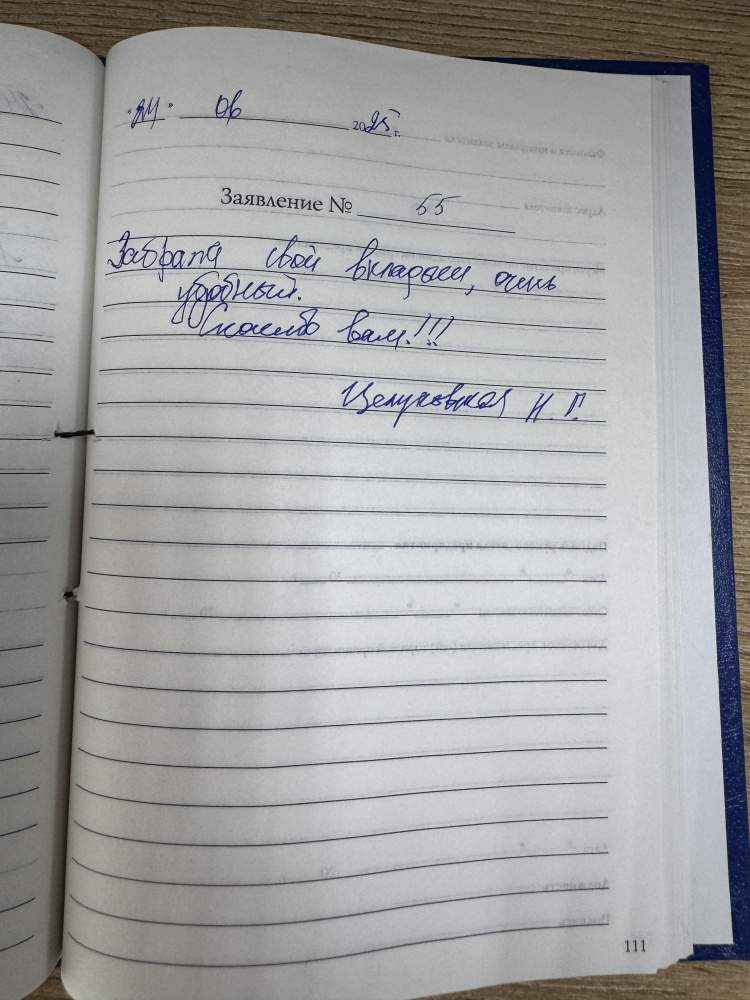 "24" 06 2025 г.
Заявление № 55
Забрала свой вкладыш, очень
удобный.
Спасибо вам!!!
Целуковская Н. Г.
111